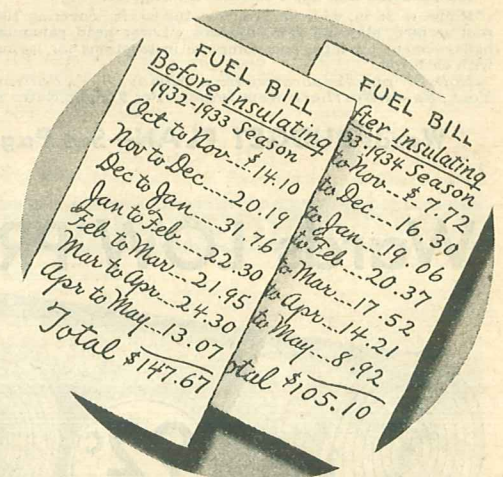 FUEL BILL
Before Insulating
1932-1933 Season
Oct to Nov...$14.10
Nov to Dec.....20.19
Dec to Jan.....31.76
Jan to Feb.....22.30
Feb to Mar....21.95
Mar to Apr...24.30
Apr to May....13.07
Total $147.67
FUEL BILL
fter Insulating
33-1934 Season
to Nov...$7.72
to Dec...16.30
to Jan...19.06
to Feb...20.37
to Mar...17.52
to Apr...14.21
to May...8.92
otal $105.10